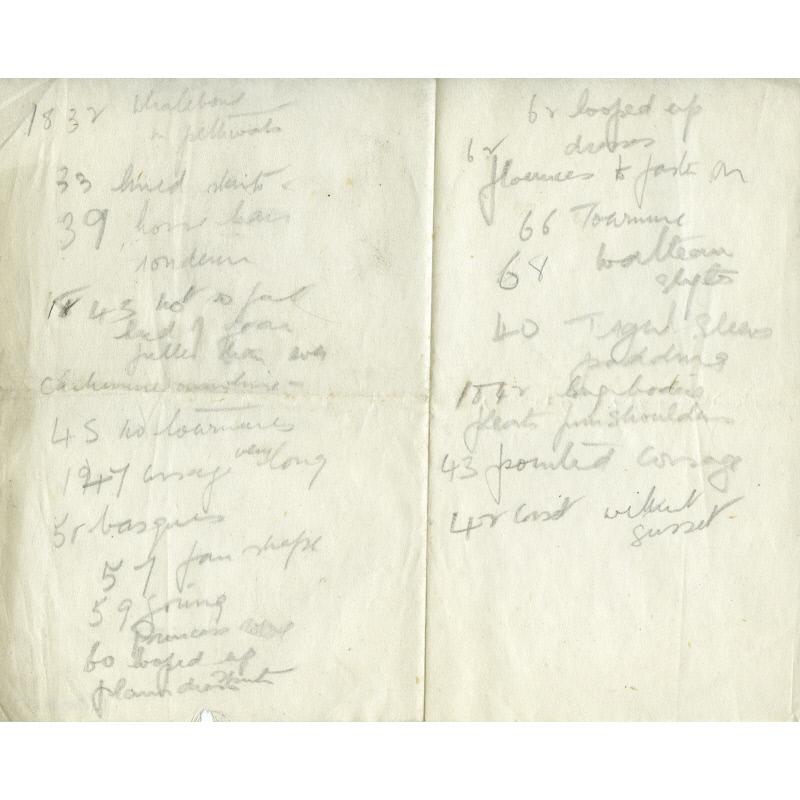 1832 Whalebone
in petticoats
33 lined skirts
39 horse hair
43 not so full
fuller than ever
Cashmere
45 no tournures
1847 corsage very long
basques
57 fan shape
59 going
Princess robe
60 looped up
plain skirts
62 looped up
dresses
62
flounces to
66 Tournure
68 Watteau
40 Tight sleeves
padding
1842 long bodice
pleats from shoulders
43 pointed corsage
42 corset without
gusset